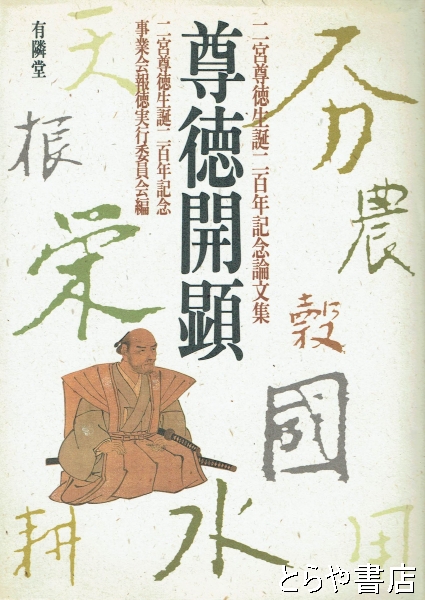 二宮尊徳生誕二百年記念論文集
尊徳開顕
二宮尊徳生誕二百年記念
事業会報徳実行委員会編
有隣堂
分
農
穀
國
田
天
振
栄
水
耕
とらや書店